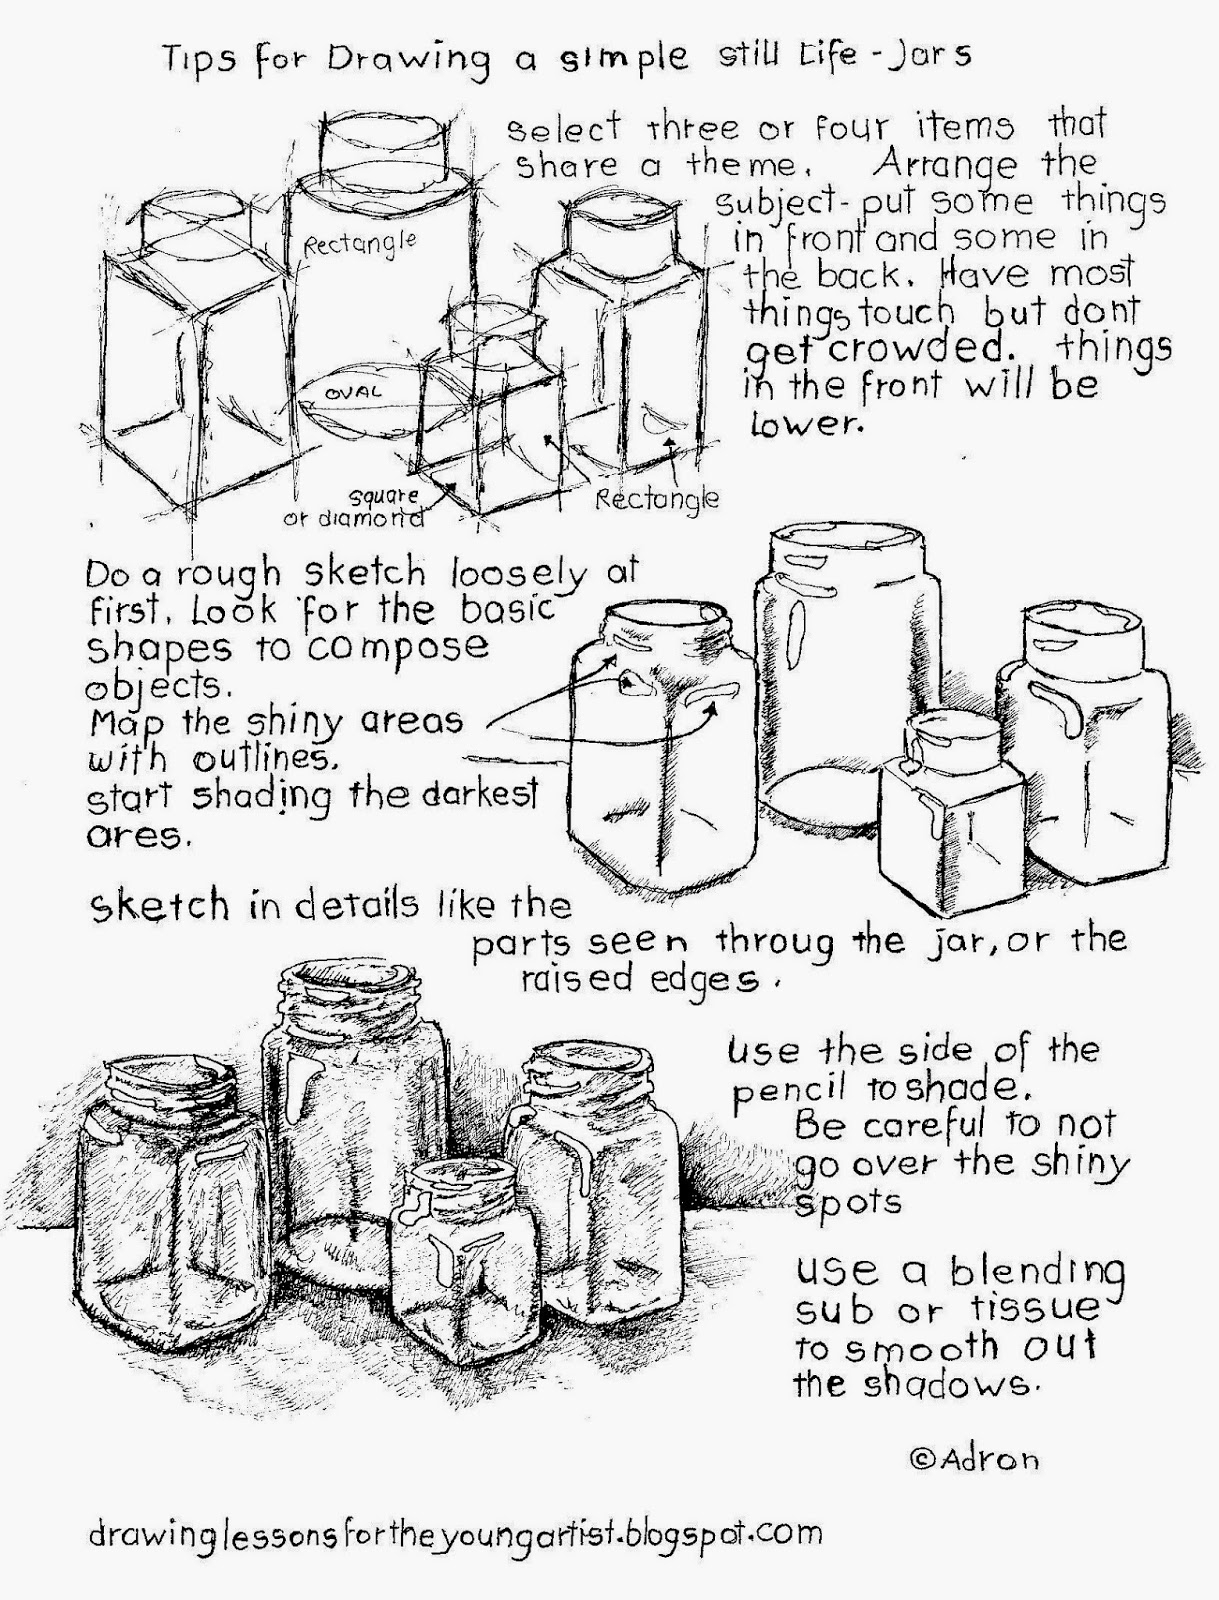 Tips for Drawing a simple still Life - Jars
select three or four items that
share a theme. Arrange the
subject- put some things
in front and some in
the back. Have most
things touch but dont
get crowded. things
in the front will be
Lower.
Rectangle
OVAL
square
or diamond
Rectangle
Do a rough sketch loosely at
first. Look for the basic
shapes to compose
objects.
Map the shiny areas
with outlines.
start shading the darkest
ares.
sketch in details like the
parts seen throug the jar, or the
raised edges.
use the side of the
pencil to shade.
Be careful to not
go over the shiny
spots
use a blending
sub or tissue
to smooth out
the shadows.
©Adron
drawinglessonsfortheyoungartist.blogspot.com